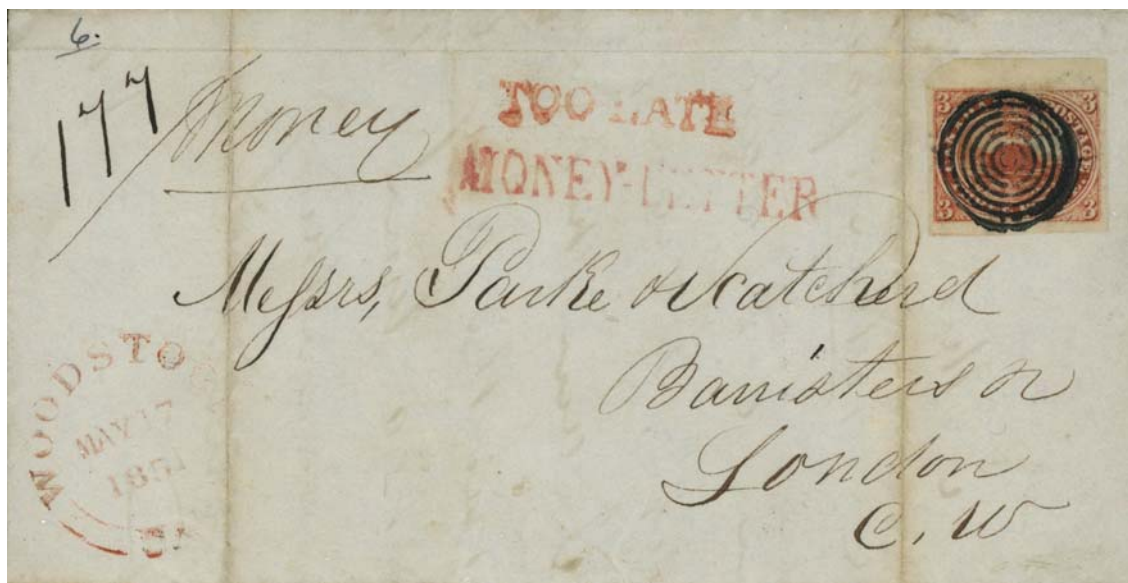 6.
177
Money
TOO LATE
MONEY-LETTER
3 POSTAGE 3
3 3
Messrs, Parke & Scatcherd
Barristers &
London
C. W
WOODSTOCK
MAY 17
185